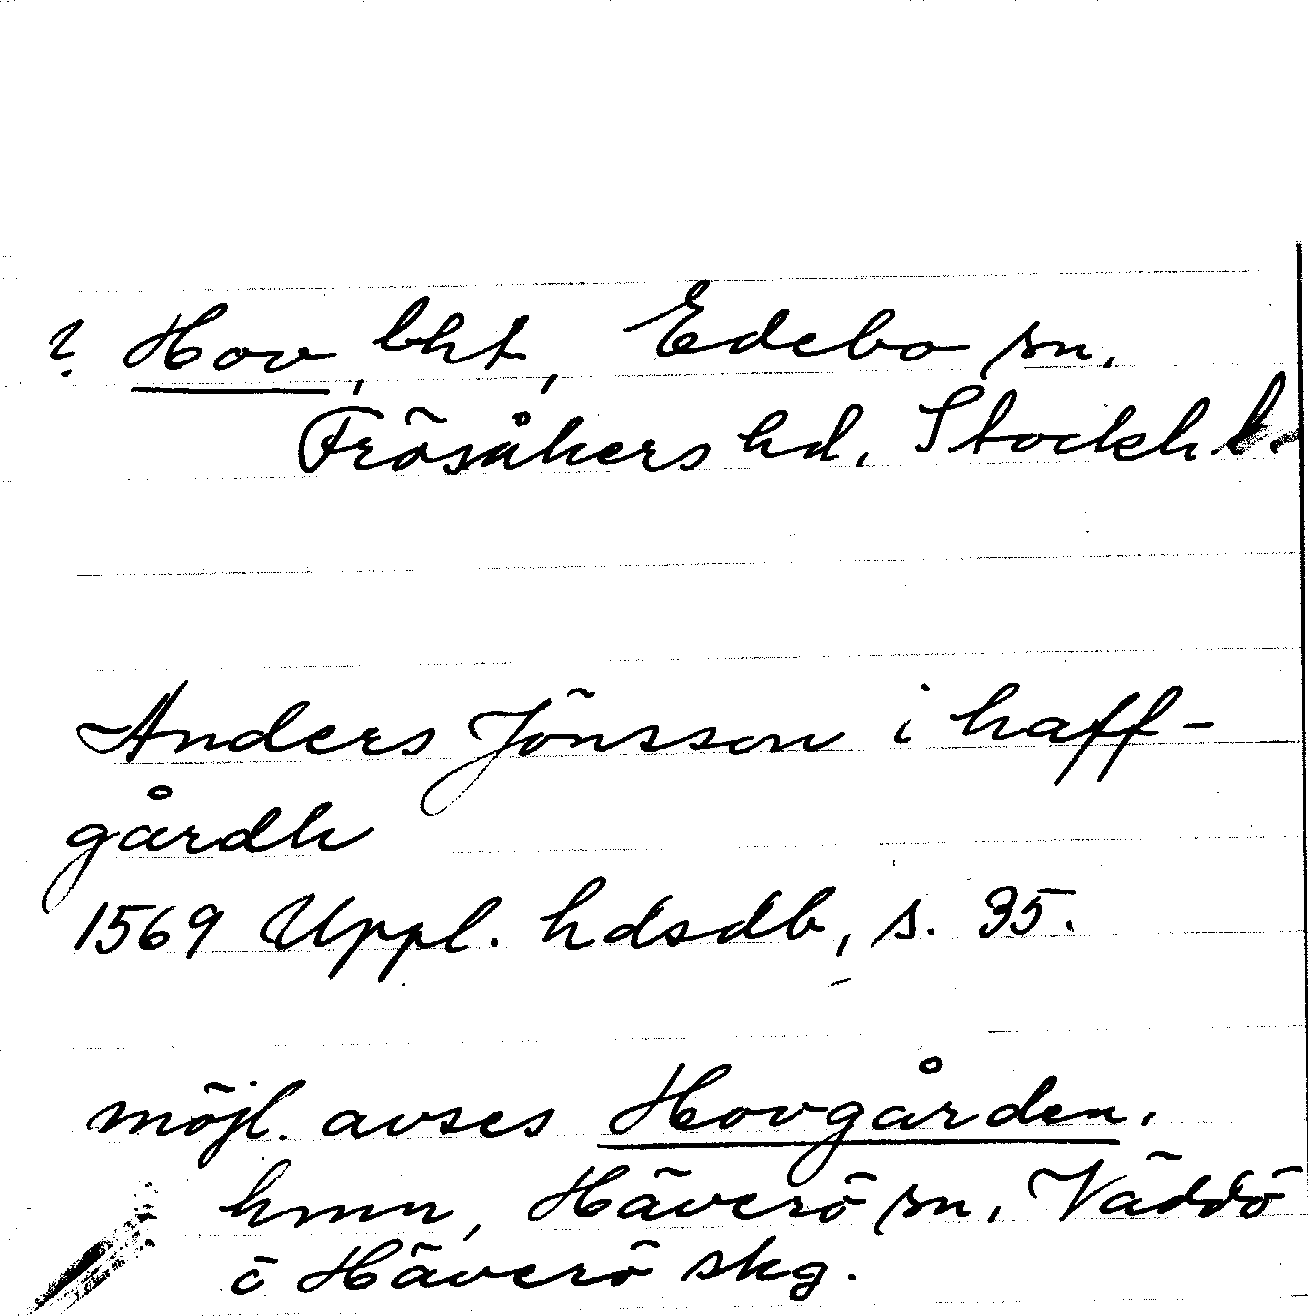 ? Hov, bht, Edebo sn.
Frösåkers hd. Stockh l.
Anders Jönsson i haff-
gårdh
1569 Uppl. hdsdb, s. 35.
möjl. avses Hovgården,
hmn, Häverö sn, Väddö
o Häverö skg.